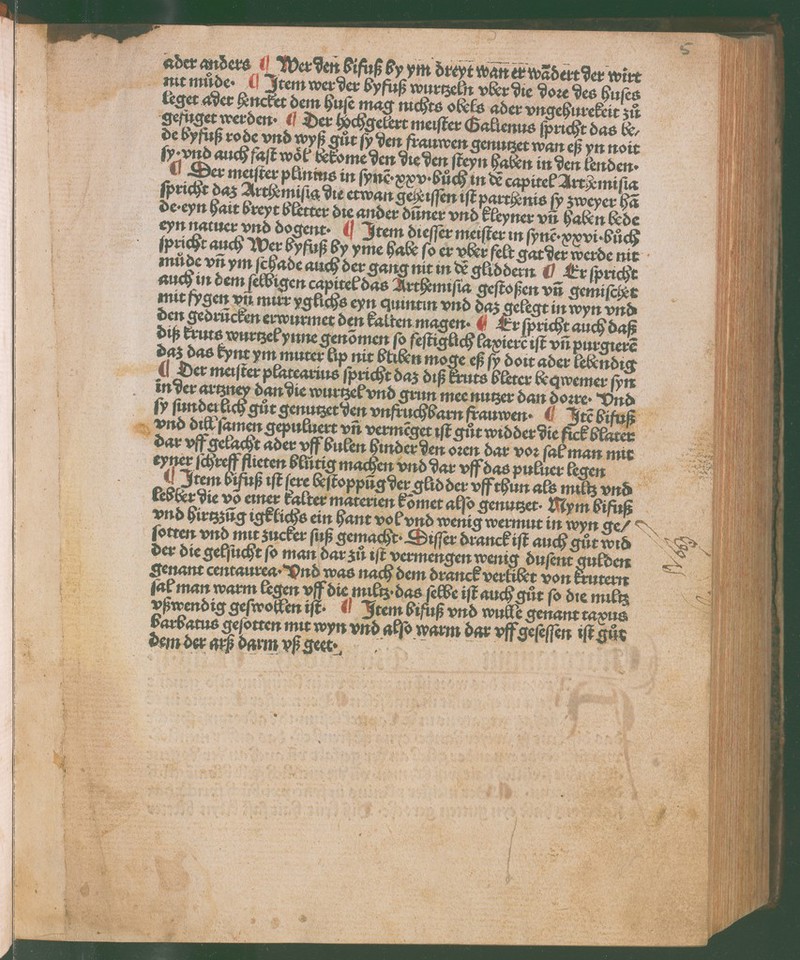 5
ader anders ¶ Wer den bifuß by ym dreyt wan er wādert der wirt
nit můde· ¶ Item wer der byfuß wurtzeln vber die dore des huses
leget ader hencket dem huse mag nichts obels ader vngehurekeit zů
gefuget werden· ¶ Der hochgelert meister Galienus spricht das be/
de byfuß rode vnd wyß gůt sy den frauwen genutzet wan eß yn noit
sy·vnd auch fast wol bekome den die den steyn haben in den lenden·
¶ Der meister plinius in synē·xxv·bůch in dē capitel Arthemisia
spricht daz Arthemisia die etwan geheissen ist parthenis sy zweyer hā
de·eyn hait breyt bletter die ander dūner vnd kleyner vñ haben bede
eyn natuer vnd dogent· ¶ Item diesser meister in synē·xxvi·bůch
spricht auch Wer byfuß by yme habe so er vber felt gat der werde nit
můde vñ ym schade auch der gang nit in dē gliddern ¶ Er spricht
auch in dem selbigen capitel das Arthemisia gestoßen vñ gemischet
mit fygen vñ mirr yglichs eyn quintin vnd daz gelegt in wyn vnd
den gedruncken erwurmet den kalten magen· ¶ Er spricht auch daß
diß kruts wurtzel ynne genōmen so festiglich laxierē ist vñ purgierē
daz das kynt ym muter lip nit bliben moge eß sy doit ader lebendig
¶ Der meister platearius spricht daz diß kruts bleter beqwemer syn
in der artzney dan die wurtzel vnd grun mee nutzer dan dorre· Vnd
sy sunderlich gůt genutzet den vnfruchbarn frauwen· ¶ Itē bifuß
vnd dill samen gepuluert vñ vermēget ist gůt widder die fick blater
dar vff gelacht ader vff bulen hinder den oren dar vor sal man mit
eyner schreff flieten blůtig machen vnd dar vff das puluer legen
¶ Item bifuß ist sere bestoppūg der glidder vff thun als miltz vnd
lebber die vō einer kalter materien kōmet also genutzet· Nym bifuß
vnd hirtzzūg igklichs ein hant vol vnd wenig wermut in wyn ge/
sotten vnd mit zucker suß gemacht· Disser dranck ist auch gůt wid
der die gelsucht so man dar zů ist vermengen wenig dusent gulden
genant centaurea·Vnd was nach dem dranck verlibet von krutern
sal man warm legen vff die miltz·das selbe ist auch gůt so die miltz
vßwendig geswollen ist· ¶ Item bifuß vnd wulle genant taxus
barbatus gesotten mit wyn vnd also warm dar vff gesessen ist gůt
dem der arß darm vß geet·